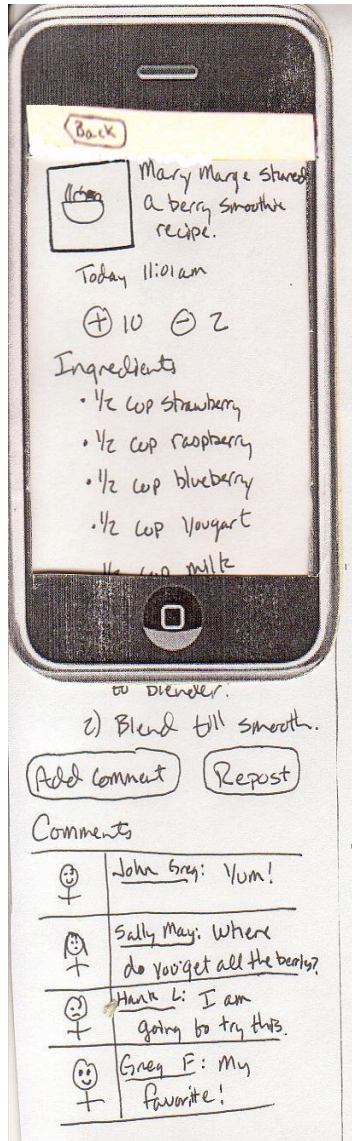 Back
Mary Marge shared
a berry smoothie
recipe.
Today 11:01am
+ 10 - 2
Ingredients
• 1/2 cup strawberry
• 1/2 cup raspberry
• 1/2 cup blueberry
• 1/2 cup Yougart
1/2 cup milk
to blender.
2) Blend till smooth.
Add comment Repost
Comments
John Greg: Yum!
Sally May: Where
do you get all the berries?
Hank L: I am
going to try this.
Greg F: My
favorite!